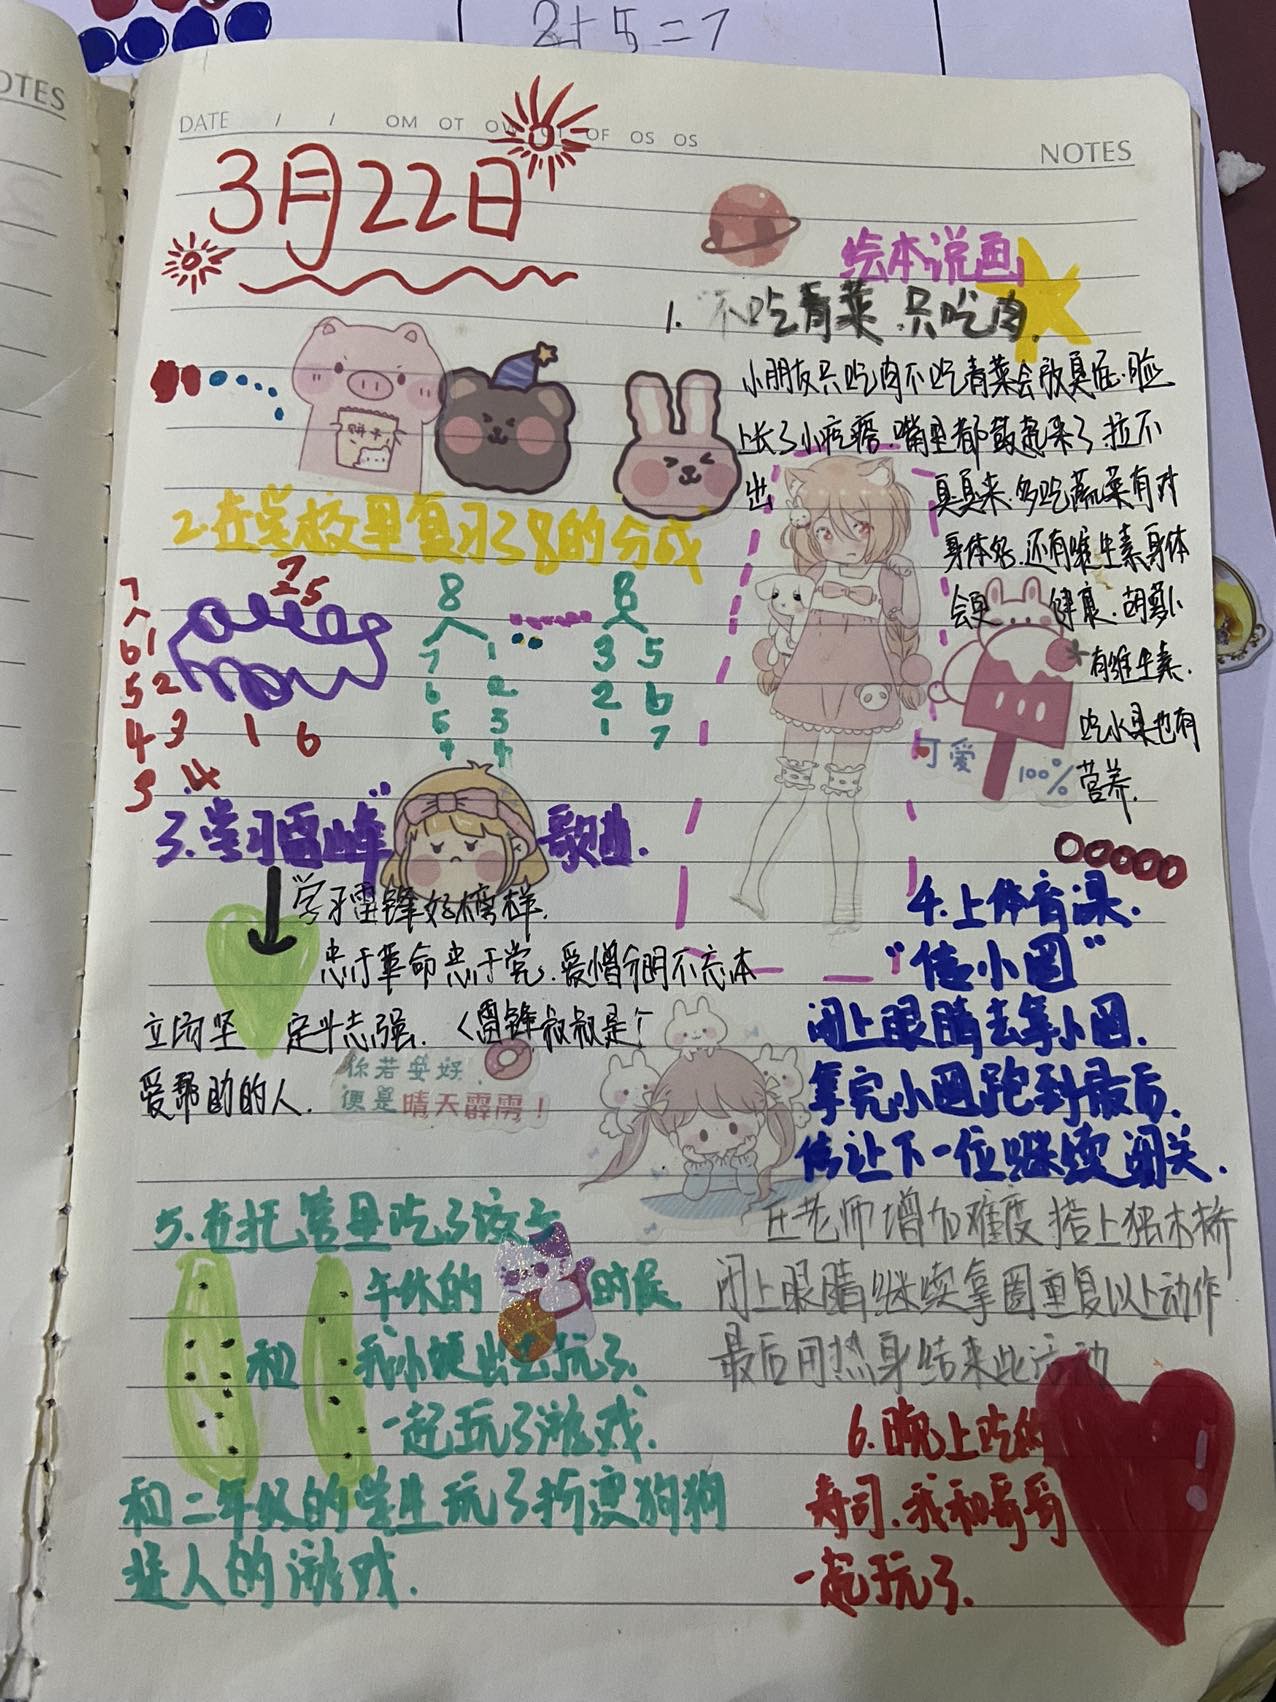 2+5=7
OTES
DATE / / OM OT OW OT OF OS OS
NOTES
3月22日
绘本说画
1. 不吃青菜 只吃肉.
小朋友只吃肉不吃青菜会放臭屁.脸
上长了小疙瘩.嘴里都鼓起来了拉不
出
臭臭来.多吃蔬菜有对
身体好.还有维生素身体
会更 健康.胡萝卜
有维生素.
吃水果也有
营养.
饼卡
可爱
100%
2.在学校里复习了8的分成
7 25 8 8
6 1 7 1 3 5
5 2 6 2 2 6
4 3 1 6 5 3 1 7
3 4 4 4
3.学习雷峰 歌曲.
学习雷锋好榜样.
忠于革命忠于党.爱憎分明不忘本
立场坚 定斗志强.《雷锋叔叔是个
爱帮助的人.
你若安好,
便是晴天霹雳!
4.上体育课.
"传小圈"
闭上眼睛去拿小圈.
拿完小圈跑到最后.
传让下一位继续闯关.
王老师增加难度搭上独木桥
闭上眼睛继续拿圈重复以上动作
最后用热身结束此活动
5.在托管里吃了饺子
午休的 时候
和 我小姨出去玩了.
一起玩了游戏.
和二年级的学生玩了扮演狗狗
进人的游戏.
6.晚上吃的
寿司.我和哥哥
一起玩了.